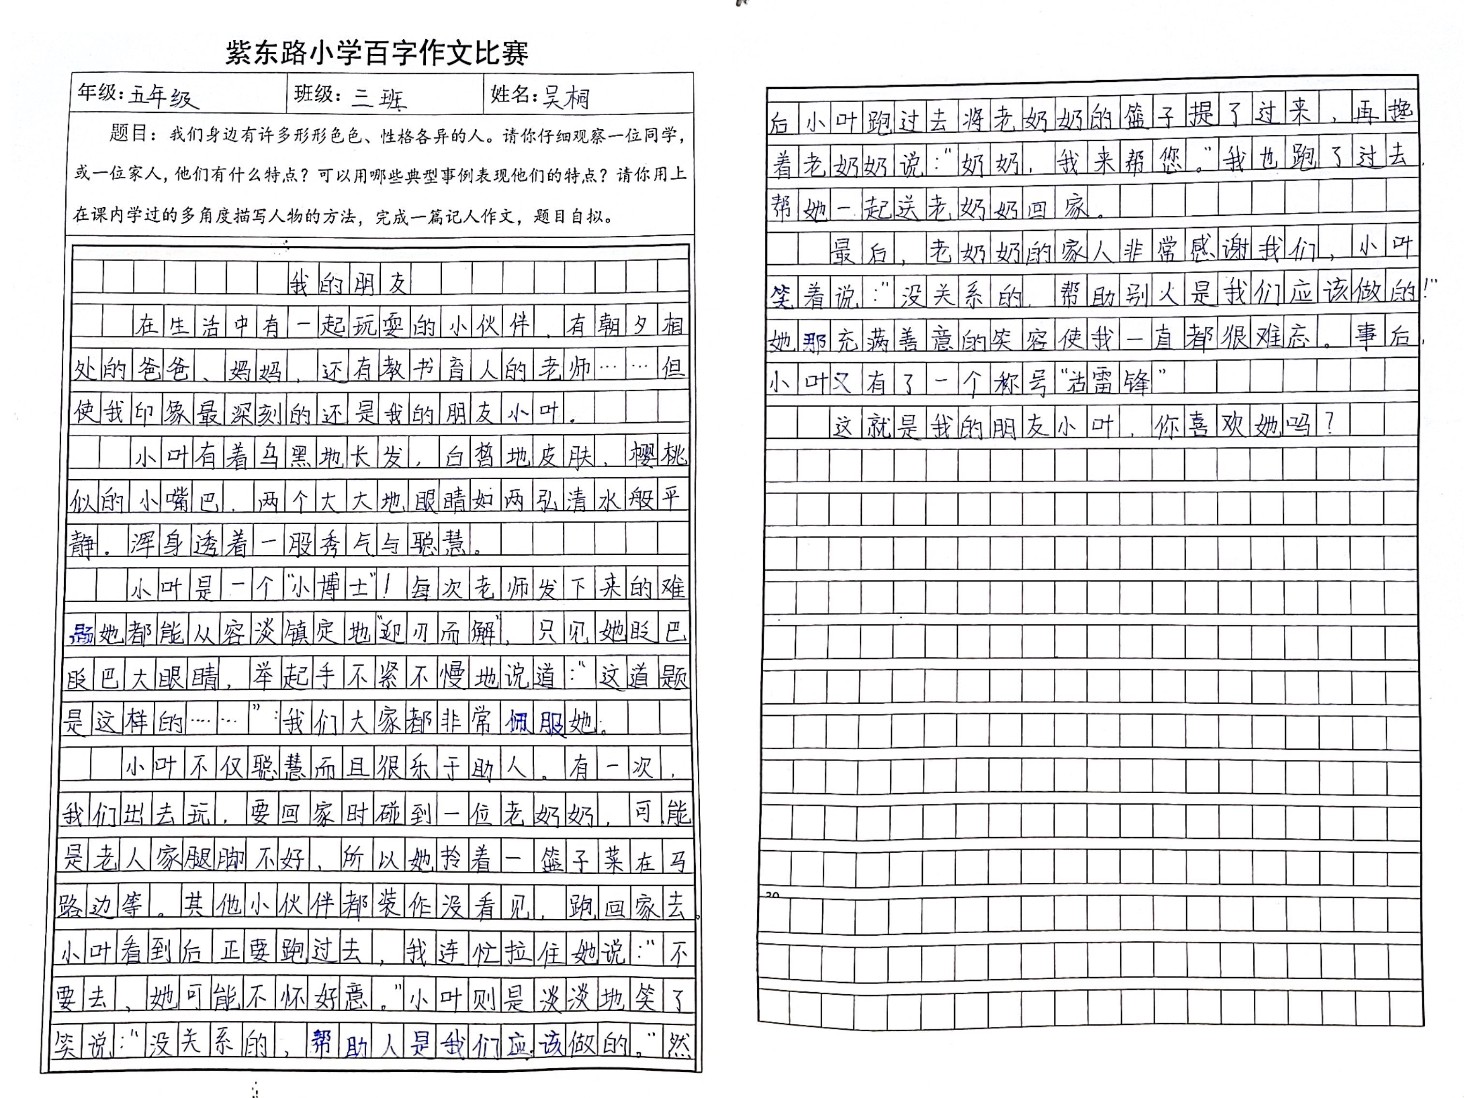 紫东路小学百字作文比赛
年级:五年级 班级:三班 姓名:吴桐
题目:我们身边有许多形形色色、性格各异的人。请你仔细观察一位同学,
或一位家人,他们有什么特点?可以用哪些典型事例表现他们的特点?请你用上
在课内学过的多角度描写人物的方法,完成一篇记人作文,题目自拟。
我的朋友
在生活中有一起玩耍的小伙伴,有朝夕相
处的爸爸、妈妈,还有教书育人的老师……但
使我印象最深刻的还是我的朋友小叶.
小叶有着乌黑地长发,白皙地皮肤,樱桃
似的小嘴巴,两个大大地眼睛如两弘清水般平
静.浑身透着一股秀气与聪慧。
小叶是一个“小博士”!每次老师发下来的难
题她都能从容淡镇定地“迎刃而解”,只见她眨巴
眨巴大眼睛,举起手不紧不慢地说道:“这道题
是这样的……”我们大家都非常佩服她。
小叶不仅聪慧而且很乐于助人。有一次,
我们出去玩,要回家时碰到一位老奶奶,可能
是老人家腿脚不好,所以她拎着一篮子菜在马
路边等。其他小伙伴都装作没看见,跑回家去。
小叶看到后正要跑过去,我连忙拉住她说:“不
要去、她可能不怀好意。”小叶则是淡淡地笑了
笑说:“没关系的,帮助人是我们应该做的。”然
后小叶跑过去将老奶奶的篮子提了过来,再搀
着老奶奶说:“奶奶,我来帮您。”我也跑了过去,
帮她一起送老奶奶回家。
最后,老奶奶的家人非常感谢我们,小叶
笑着说:“没关系的,帮助别人是我们应该做的!”
她那充满善意的笑容使我一直都很难忘。事后,
小叶又有了一个称号“活雷锋”
这就是我的朋友小叶,你喜欢她吗?
20